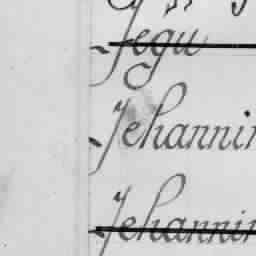 Jegu
Jehannin
Jehannin